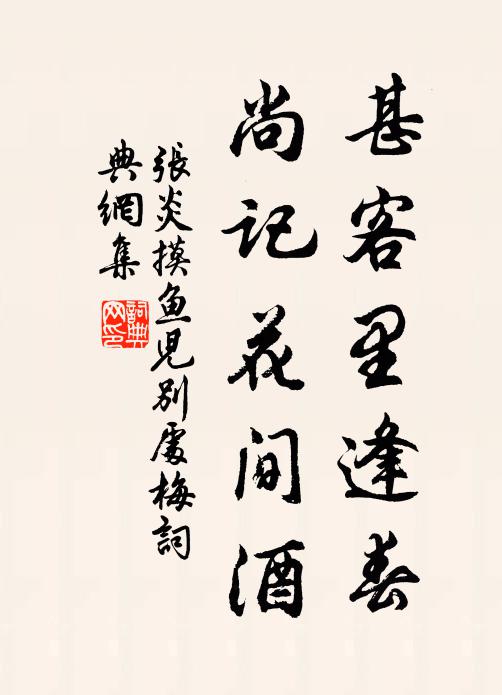 甚客里逢春
尚记花间酒
張炎摸魚児别處梅詞
典網集
詞典網印